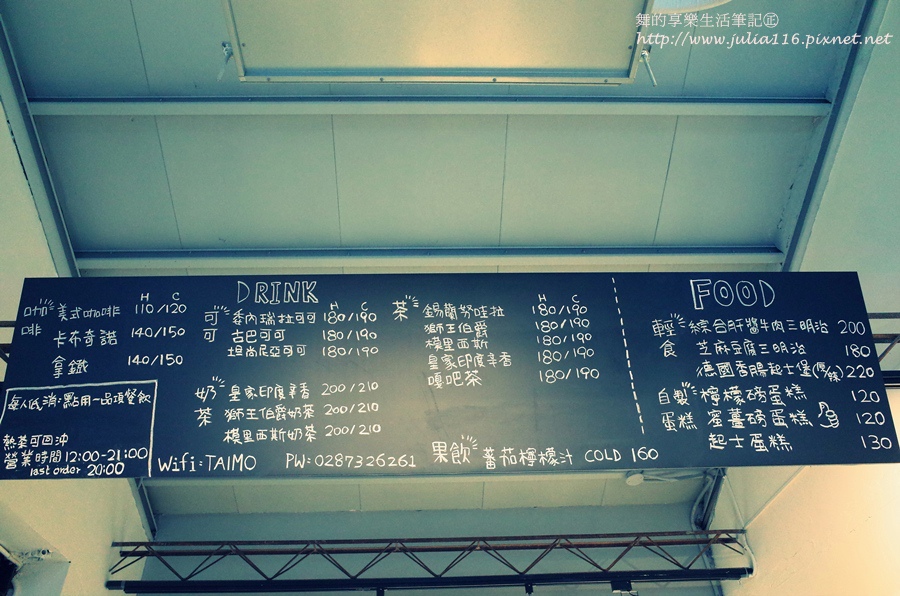 舞的享樂生活筆記㊣
http://www.julia116.pixnet.net
DRINK
咖啡
H C
美式咖啡 110/120
卡布奇諾 140/150
拿鐵 140/150
可可
H C
委內瑞拉可可 180/190
古巴可可 180/190
坦尚尼亞可可 180/190
奶茶
皇家印度辛香 200/210
獅王伯爵奶茶 200/210
模里西斯奶茶 200/210
茶
H C
錫蘭努哇拉 180/190
獅王伯爵 180/190
模里西斯 180/190
皇家印度辛香 180/190
嘎吧茶 180/190
果飲 蕃茄檸檬汁 COLD 160
FOOD
輕食
綜合肝醬牛肉三明治 200
芝麻豆腐三明治 180
德國香腸起士堡 220
自製蛋糕
檸檬磅蛋糕 120
蜜薑磅蛋糕 120
起士蛋糕 130
每人低消:點用一品項餐飲
熱茶可回沖
營業時間12:00-21:00
last order 20:00
Wifi:TAIMO PW:0287326261